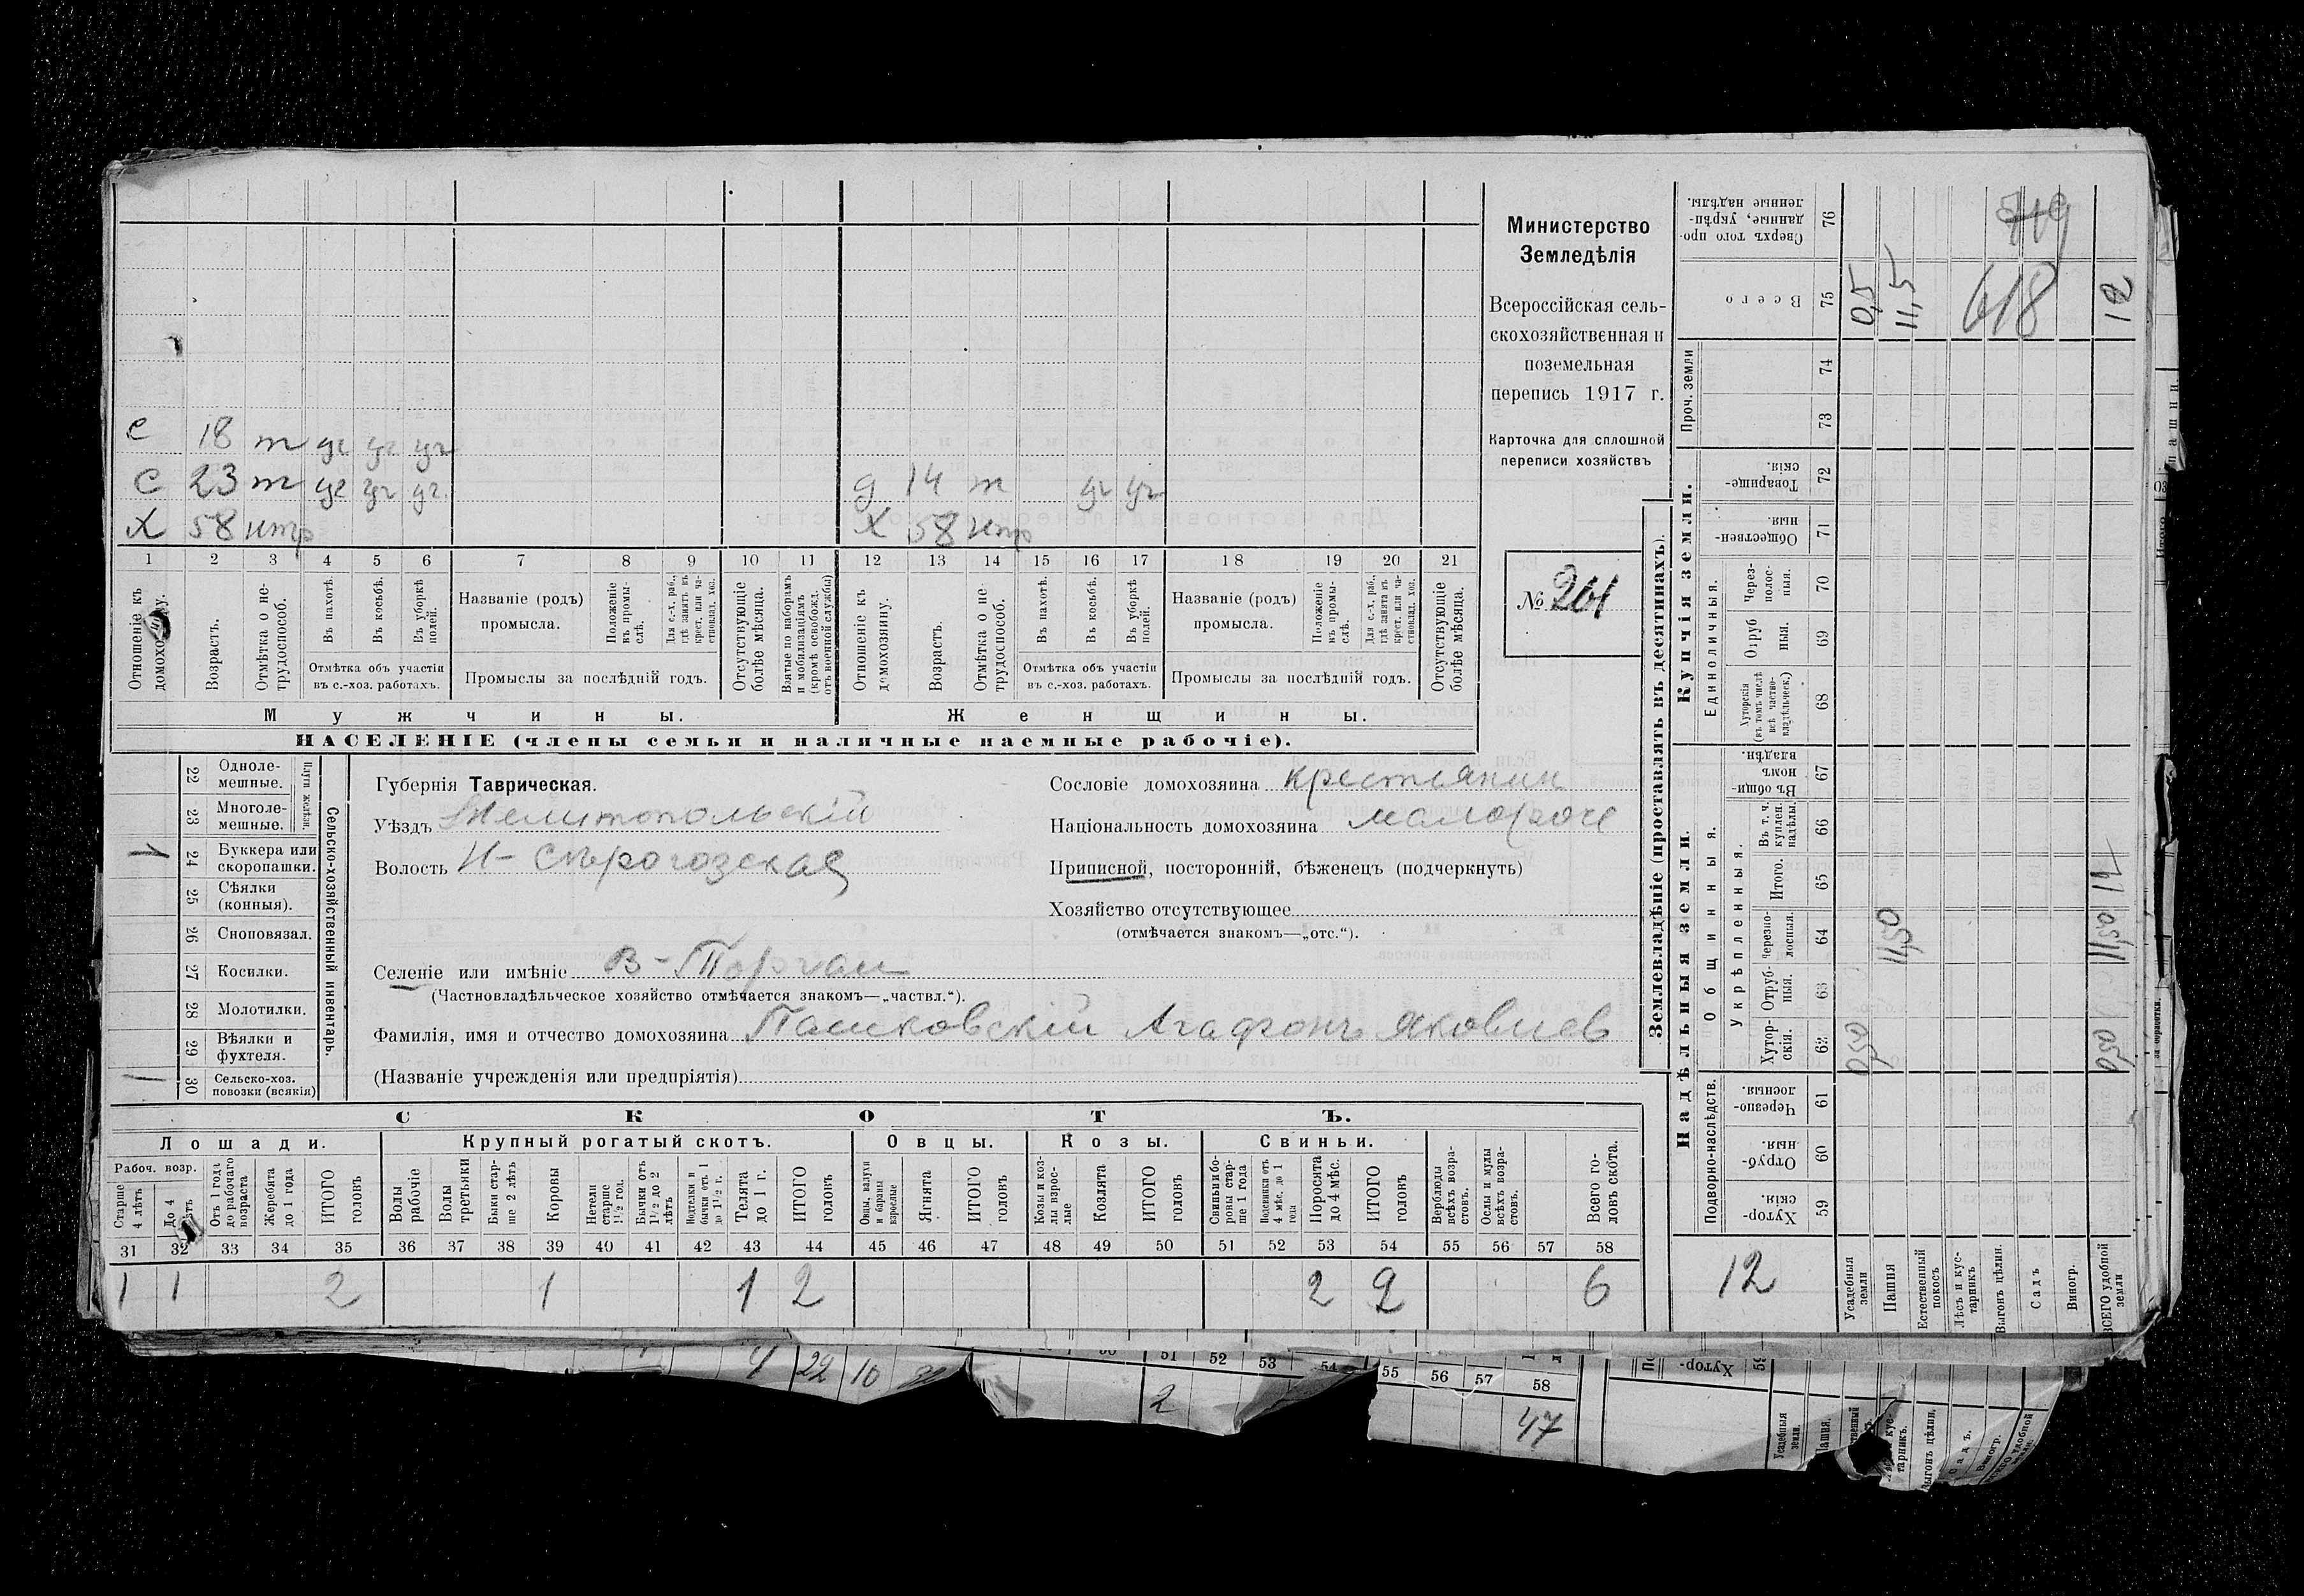 е 18 т уч уч уч
с 23 т уч уч уч
д 14 т уч уч
х 58 нтр
х 58 нтр
1 2 3 4 5 6 7 8 9 10 11 12 13 14 15 16 17 18 19 20 21
Отношеніе къ домохозяину.
Возрастъ.
Отмѣтка о нетрудоспособ.
Въ пахотѣ.
Въ косьбѣ.
Въ уборкѣ полей.
Отмѣтка объ участіи
въ с.-хоз. работахъ.
Названіе (родъ)
промысла.
Положеніе къ промыслѣ.
Для с.-х. раб., гдѣ занятъ въ крест. или частновлад. хоз.
Промыслы за послѣдній годъ.
Отсутствующіе болѣе мѣсяца.
Взятые по наборамъ и мобилизаціямъ (кромѣ освобожд. отъ военной службы)
Отношеніе къ домохозяину.
Возрастъ.
Отмѣтка о не трудоспособ.
Въ пахотѣ.
Въ косьбѣ.
Въ уборкѣ полей.
Отмѣтка объ участіи
въ с.-хоз. работахъ.
Названіе (родъ)
промысла.
Положеніе къ промыслѣ.
Для с.-х. раб., гдѣ занята въ крест. или частновлад. хоз.
Промыслы за послѣдній годъ.
Отсутствующіе болѣе мѣсяца.
Мужчины.
Женщины.
НАСЕЛЕНІЕ (члены семьи и наличные наемные рабочіе).
Министерство
Земледѣлія
Всероссійская сель-
скохозяйственная и
поземельная
перепись 1917 г.
Карточка для сплошной
переписи хозяйствъ
№ 261
22 Одноле-
мешные.
23 Многоле-
мешные.
Плуги желѣзн.
1 24 Буккера или
скоропашки.
25 Сѣялки
(конныя).
26 Сноповязал.
27 Косилки.
28 Молотилки.
29 Вѣялки и
фухтеля.
1 30 Сельско-хоз.
повозки (всякія)
Сельско-хозяйственный инвентарь
Губернія Таврическая.
Уѣздъ Мелитопольскій
Волость Н-Сѣрогозская
Селеніе или имѣніе В-Торгаи
(Частновладѣльческое хозяйство отмѣчается знакомъ—„частвл.“).
Фамилія, имя и отчество домохозяина Пашковскій Агафонъ Яковлев
(Названіе учрежденія или предпріятія)
Сословіе домохозяина крестьянин
Національность домохозяина малоросс
Приписной, посторонній, бѣженецъ (подчеркнуть)
Хозяйство отсутствующее
(отмѣчается знакомъ—„отс.“).
СКОТЪ.
Лошади. Крупный рогатый скотъ. Овцы. Козы. Свиньи.
Рабоч. возр.
Старше 4 лѣтъ
До 4 лѣтъ
Отъ 1 года до рабочаго возраста
Жеребята до 1 года
ИТОГО головъ
Волы рабочіе
Волы третьяки
Быки старше 2 лѣтъ
Коровы
Нетели старше 1½ год.
Бычки отъ 1½ до 2 лѣтъ
Подтелки и бычки отъ 1 до 1½ г.
Телята до 1 г.
ИТОГО головъ
Овцы, валухи и бараны взрослые
Ягнята
ИТОГО головъ
Козы и козлы взрослые
Козлята
ИТОГО головъ
Свиньи боровы старше 1 года
Подсвинки отъ 4 мѣс. до 1 года
Поросята до 4 мѣс.
ИТОГО головъ
Верблюды всѣхъ возрастовъ.
Ослы и мулы всѣхъ возрастовъ.
Всего головъ скота.
31 32 33 34 35 36 37 38 39 40 41 42 43 44 45 46 47 48 49 50 51 52 53 54 55 56 57 58
1 1 2 1 1 2 2 2 6
Землевладѣніе (проставлять въ десятинахъ).
Купчія земли.
Надѣльныя земли.
Сверхъ того проданные, укрѣпленные надѣлы. 76
719
Всего 75 0,5 11,5 618 12
Проч. земли 74
73
Товарищескія. 72
Общественныя. 71
Единоличныя.
Черезполосныя. 70
Отрубныя. 69
Хуторскія (въ томъ числѣ всѣ частновладѣльческ.) 68
Въ общинномъ владѣн. 67
Общинныя.
Укрѣпленныя.
Въ т. ч. куплен. надѣлы. 66
Итого. 65 12
Черезполосныя. 64 11,50 11,50
Отрубныя. 63
Хуторскія. 62 0,50 0,50
Подворно-наслѣдств.
Черезполосныя. 61
Отрубныя. 60
Хуторскія. 59
12
Усадебныя земли
Пашня
Естественный покосъ
Лѣсъ и кустарникъ
Выгонъ цѣлин.
Садъ
Виногр.
ВСЕГО удобной земли
4 22 10
51 52 53 54 55 56 57 58
2
47
Хутор-
Усадебныя земли.
Пашня.
тарникъ.
Выгонъ цѣлин.
Садъ.
Виногр.